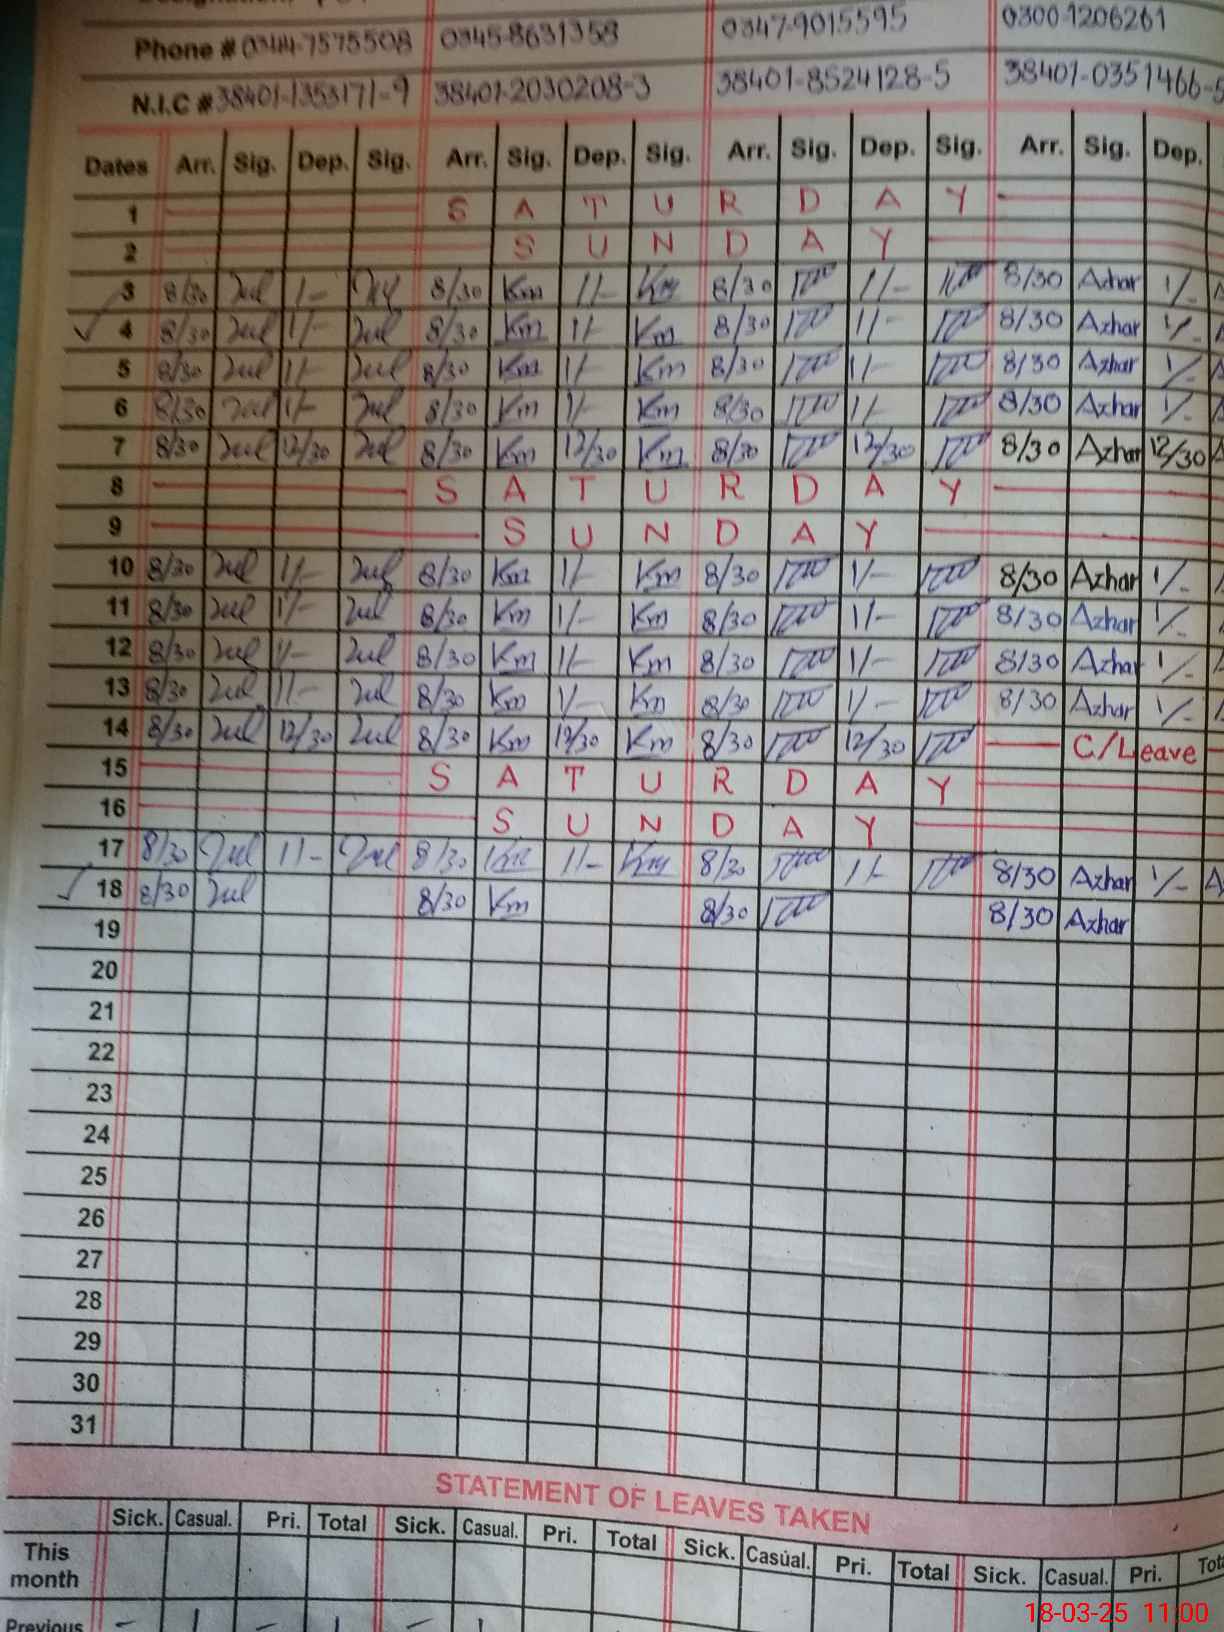 Phone # 0344-7575508 0345-8631358 0347-9015595 0300-1206261
N.I.C # 38401-1353171-9 38401-2030208-3 38401-8524128-5 38401-0351466-5
Dates Arr. Sig. Dep. Sig. Arr. Sig. Dep. Sig. Arr. Sig. Dep. Sig. Arr. Sig. Dep.
1 S A T U R D A Y
2 S U N D A Y
3 8/30 1/- 8/30 Km 1/- Km 8/30 1/- 8/30 Azhar 1/-
4 8/30 1/- 8/30 Km 1/- Km 8/30 1/- 8/30 Azhar 1/-
5 8/30 1/- 8/30 Km 1/- Km 8/30 1/- 8/30 Azhar 1/-
6 8/30 1/- 8/30 Km 1/- Km 8/30 1/- 8/30 Azhar 1/-
7 8/30 12/30 8/30 Km 12/30 Km 8/30 12/30 8/30 Azhar 12/30
8 S A T U R D A Y
9 S U N D A Y
10 8/30 1/- 8/30 Km 1/- Km 8/30 1/- 8/30 Azhar 1/-
11 8/30 1/- 8/30 Km 1/- Km 8/30 1/- 8/30 Azhar 1/-
12 8/30 1/- 8/30 Km 1/- Km 8/30 1/- 8/30 Azhar 1/-
13 8/30 1/- 8/30 Km 1/- Km 8/30 1/- 8/30 Azhar 1/-
14 8/30 12/30 8/30 Km 12/30 Km 8/30 12/30 C/Leave
15 S A T U R D A Y
16 S U N D A Y
17 8/30 1/- 8/30 Km 1/- Km 8/30 1/- 8/30 Azhar 1/- A
18 8/30 8/30 Km 8/30 8/30 Azhar
19
20
21
22
23
24
25
26
27
28
29
30
31
STATEMENT OF LEAVES TAKEN
Sick. Casual. Pri. Total Sick. Casual. Pri. Total Sick. Casual. Pri. Total Sick. Casual. Pri.
This month
Previous
18-03-25 11:00